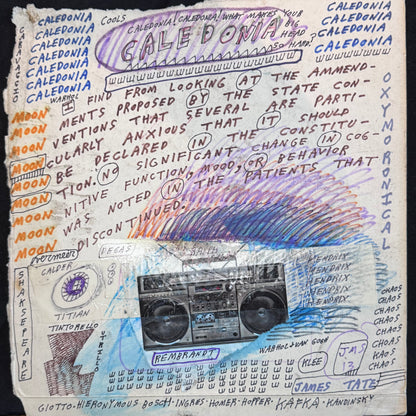 CALEDONIA COOLS
CALEDONIA CALEDONIA WHAT MAKES YOUR
CALEDONIA
CALEDONIA
CALEDONIA
CALEDONIA
CALEDONIA
CALEDONIA
BIG
HEAD
SO HARD?
CALEDONIA
CALEDONIA
CALEDONIA
CALEDONIA
CALEDONIA
WARHOL
I FIND FROM LOOKING AT THE AMMEND-
MENTS PROPOSED BY THE STATE CON-
VENTIONS THAT SEVERAL ARE PARTI-
CULARLY ANXIOUS THAT IT SHOULD
BE DECLARED IN THE CONSTITU-
TION. NO SIGNIFICANT CHANGE IN COG-
NITIVE FUNCTION, MOOD, OR BEHAVIOR
WAS NOTED IN THE PATIENTS THAT
DISCONTINUED.
MOON
MOON
MOON
MOON
MOON
MOON
MOON
OXYMORONICAL
vermeer
DEGAS
CALDER
SHAKSEPEARE
TITIAN
TINTORELLO
HENDRIX
HENDRIX
HENDRIX
HENDRIX
HENDRIX
CHAOS
CHAOS
CHAOS
CHAOS
KAOS
CHAOS
REMBRANDT
WARHOL VAN GOGH
KLEE
JAMES TATE
GIOTTO-HIERONYMOUS BOSCH-INGRES-HOMER-HOPPER-KAFKA-KANDINSKY